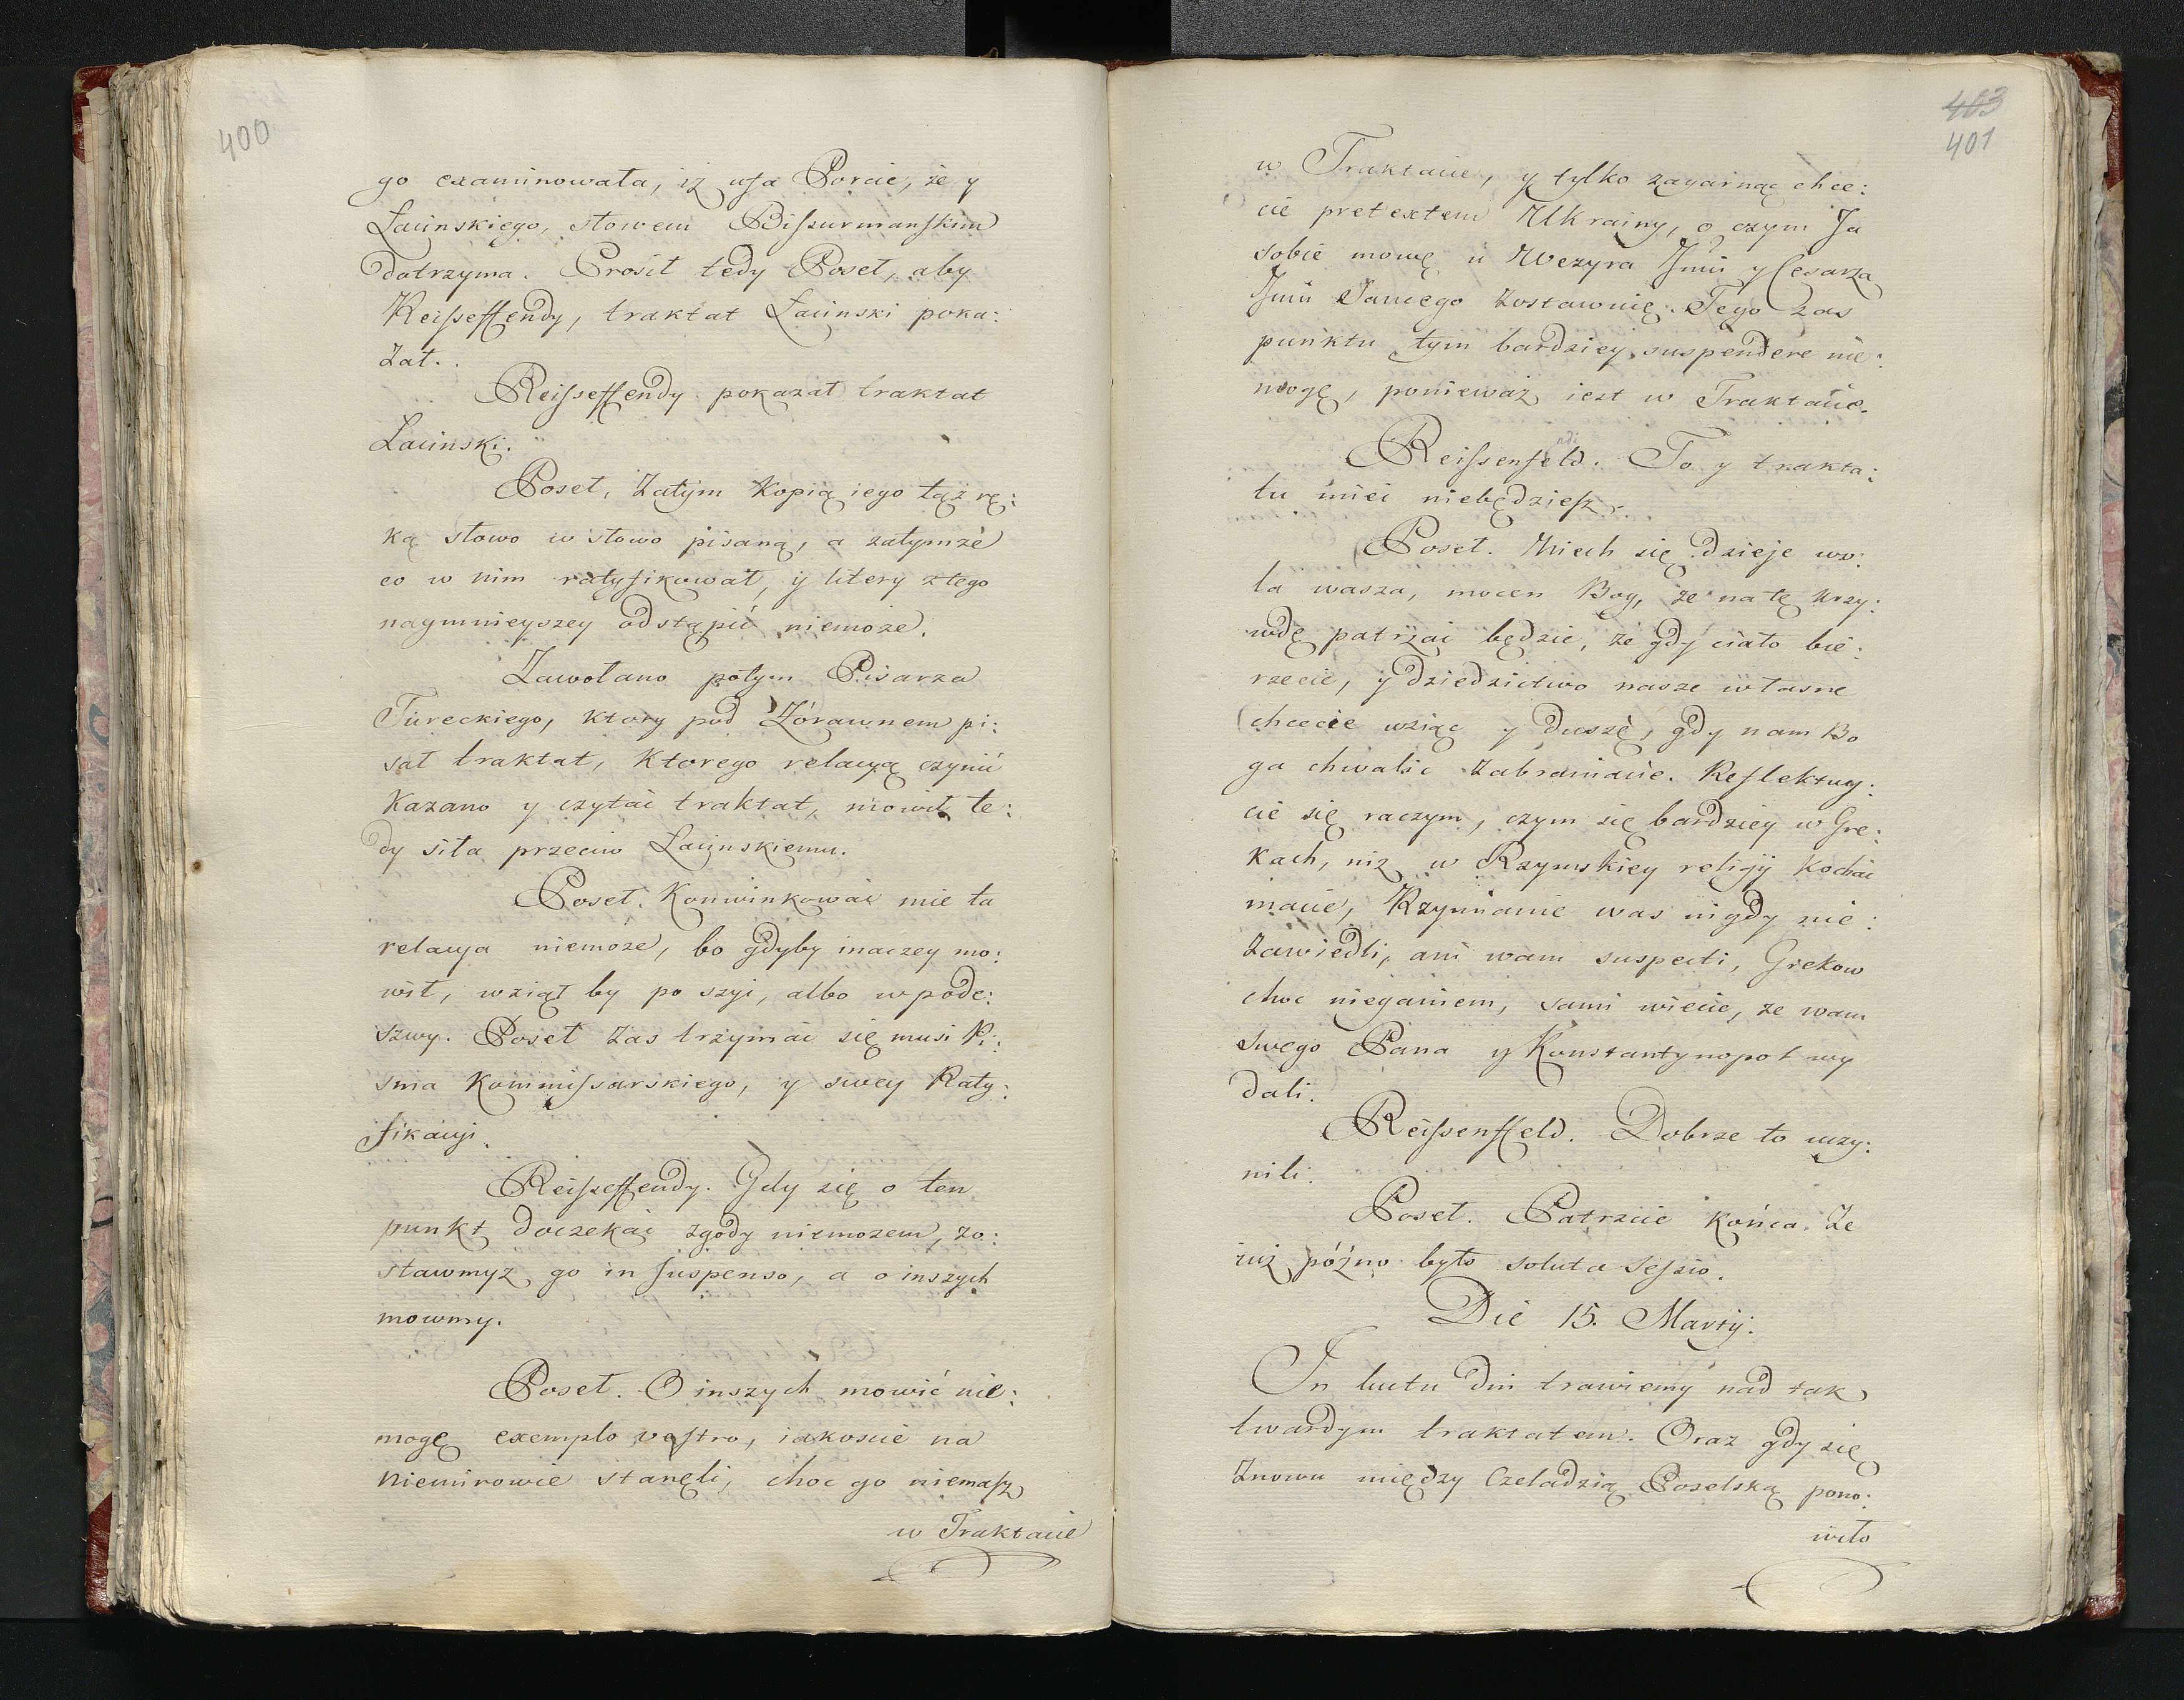 400
go examinowała, iż ufa Porcie, że y
Łacinskiego, słowem Bissurmanskim
dotrzyma. Prosił tedy Poseł, aby
Reisseffendy, traktat Łacinski poka:
zał.
Reisseffendy pokazał traktat
Łacinski.
Poseł, Zatym Kopią iego tąż rę:
ką słowo w słowo pisaną, a zatymże
co w nim ratyfikował, y litery z tego
naymnieyszey odstąpić niemoże.
Zawołano potym Pisarza
Tureckiego, ktory pod Zórawnem pi:
sał traktat, Ktorego relacyą czynić
Kazano y czytać traktat, mowił te:
dy siła przeciw Łacinskiemu.
Poseł. Konwinkować mie ta
relacya niemoże, bo gdyby inaczey mo:
wił, wziął by po szyi, albo w pode:
szwy. Poseł zas trzymać się musi Pi:
sma Kommissarskiego, y swey Raty:
fikacyi.
Reisseffendy. Gdy się o ten
punkt doczekać zgody niemożem, zo:
stawmyż go in suspenso, a o inszych
mowmy.
Poseł. O inszych mowić nie:
mogę exemplo vestro, iakoscie na
Niemirowie stanęli, choc go niemasz
w Traktacie
403
401
w Traktacie, y tylko zagarnąc chce:
cie pretextem Ukrainy, o czym Ja
sobie mowę u Wezyra Jmći y Cesarza
Jmći Samego zostawuię. Tego zas
punktu tym bardziey suspendere nie:
mogę, ponieważ iest w Traktacie.
ndi
Reissenfeld. To y trakta:
tu mieć niebędziesz.
Poseł. Niech się dzieje wo:
la wasza, mocen Bog, że na tę krzy:
wdę patrzać będzie, że gdy ciało bie:
rzecie, y dziedzictwo nasze własne
chcecie wziąc y duszę, gdy nam Bo
ga chwalić zabraniacie. Reflektuy:
cie się raczym, czym się bardziey w Gre:
kach, niż w Rzymskiey religij Kochać
macie, Rzymianie was nigdy nie:
zawiedli, ani wam suspecti, Grekow
choc nieganiem, sami wiecie, że wam
swego Pana y Konstantynopol wy
dali.
Reissenffeld. Dobrze to uczy:
nili.
Poseł. Patrzcie końca. Ze
iuż późno było soluta Sessio.
Die 15. Martij.
In luctu dni trawiemy nad tak
twardym traktatem. Oraz gdy się
znowu między Czeladzią Poselską pono:
wiło